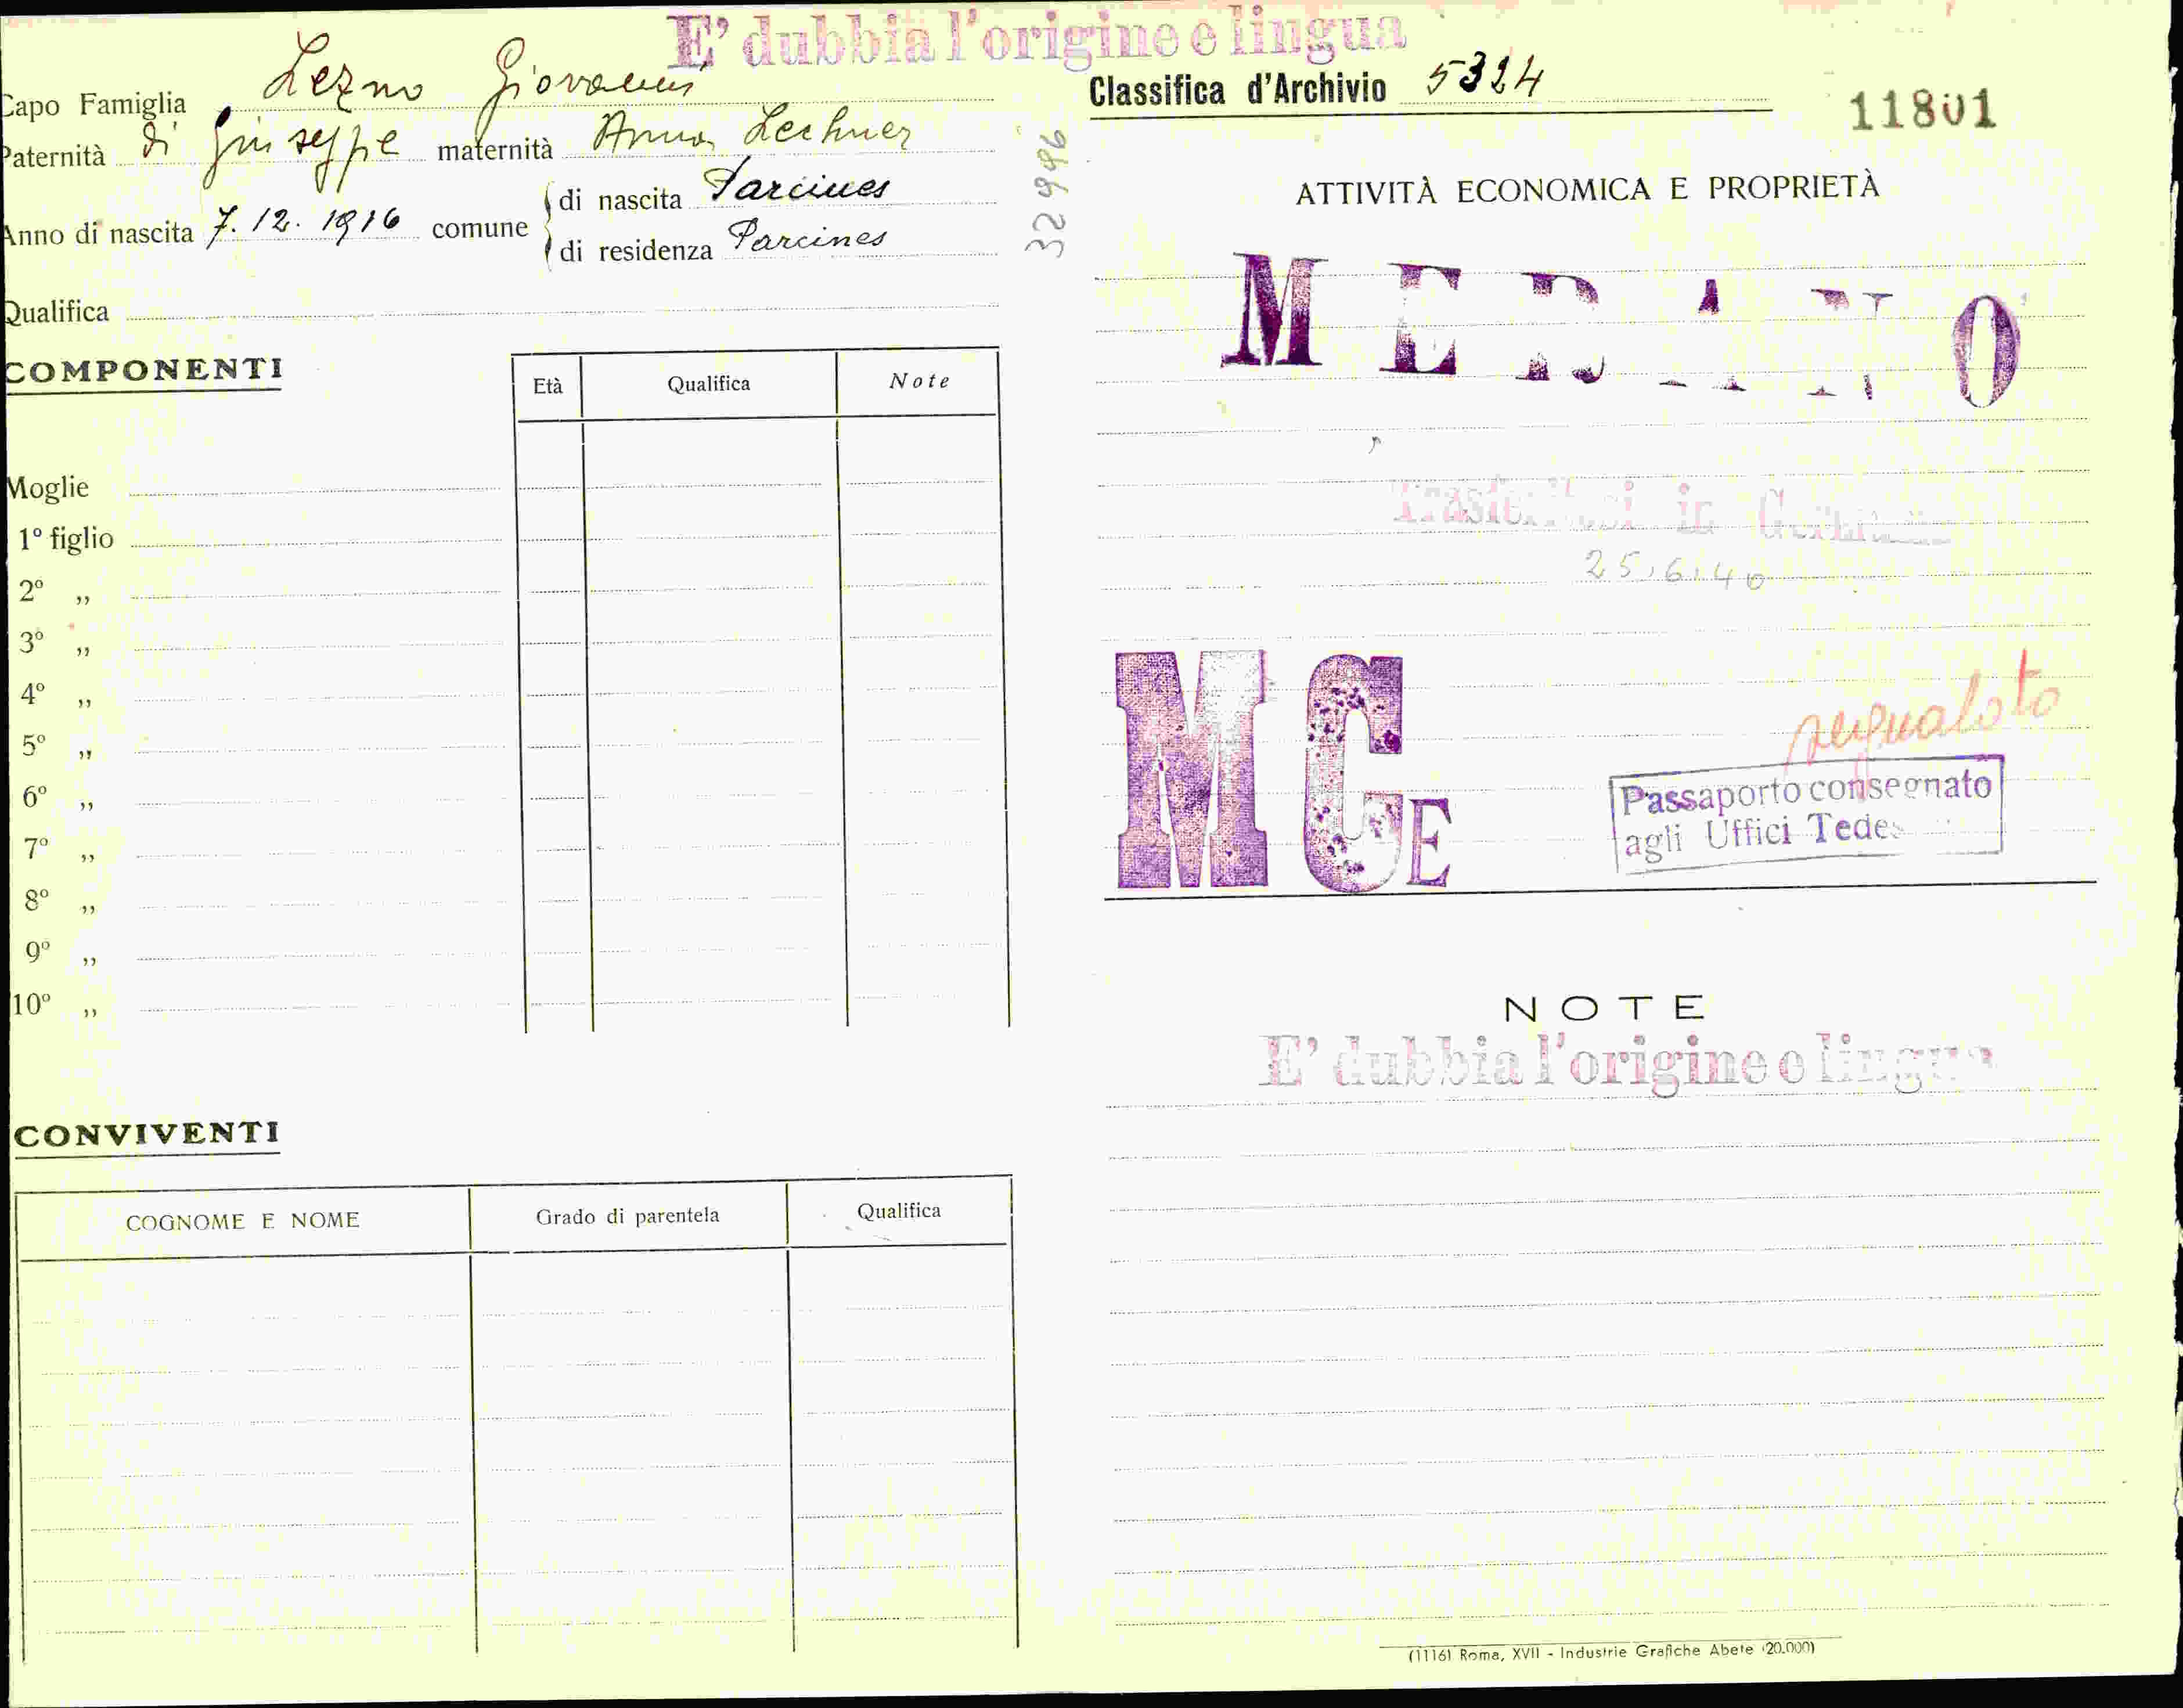 E' dubbia l'origine o lingua
Capo Famiglia Lezno Giovanni
Paternità di Giuseppe maternità Anna Lechner
Anno di nascita 7.12.1916 comune
di nascita Parcines
di residenza Parcines
Qualifica
COMPONENTI
Età Qualifica Note
Moglie
1º figlio
2º „
3º „
4º „
5º „
6º „
7º „
8º „
9º „
10º „
CONVIVENTI
COGNOME E NOME Grado di parentela Qualifica
32996
Classifica d'Archivio 5324
11801
ATTIVITÀ ECONOMICA E PROPRIETÀ
MERANO
in
25.6.40
MCE
Passaporto consegnato
agli Uffici
NOTE
E' dubbia l'origine o lingua
(1116) Roma, XVII - Industrie Grafiche Abete (20.000)